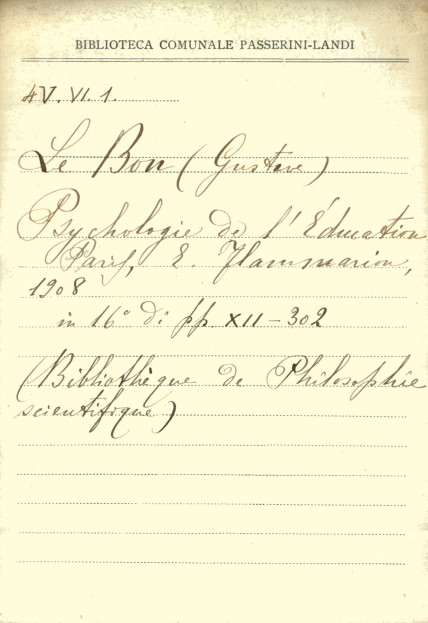 BIBLIOTECA COMUNALE PASSERINI-LANDI
4V. VI. 1.
Le Bon (Gustave)
Psychologie de l'Éducation
Paris, E. Flammarion,
1908
in 16° di pp. XII-302
(Bibliothèque de Philosophie
scientifique)